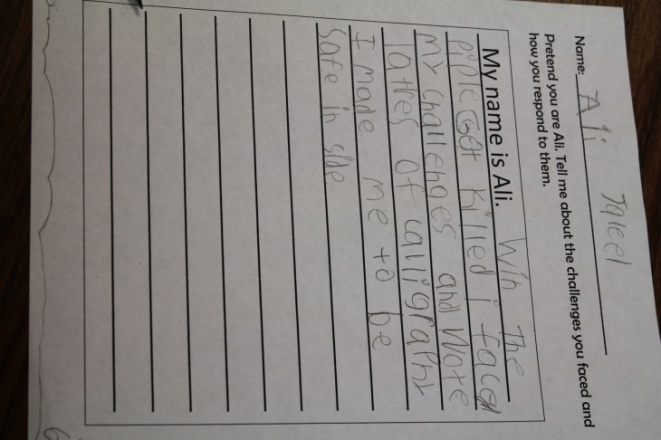 Jaleel
Name: Ali
Pretend you are Ali. Tell me about the challenges you faced and
how you respond to them.
My name is Ali. Win The
piple get killed i faced
my challenges and Wote
latres of calligraphy
I made me to be
Safe in side